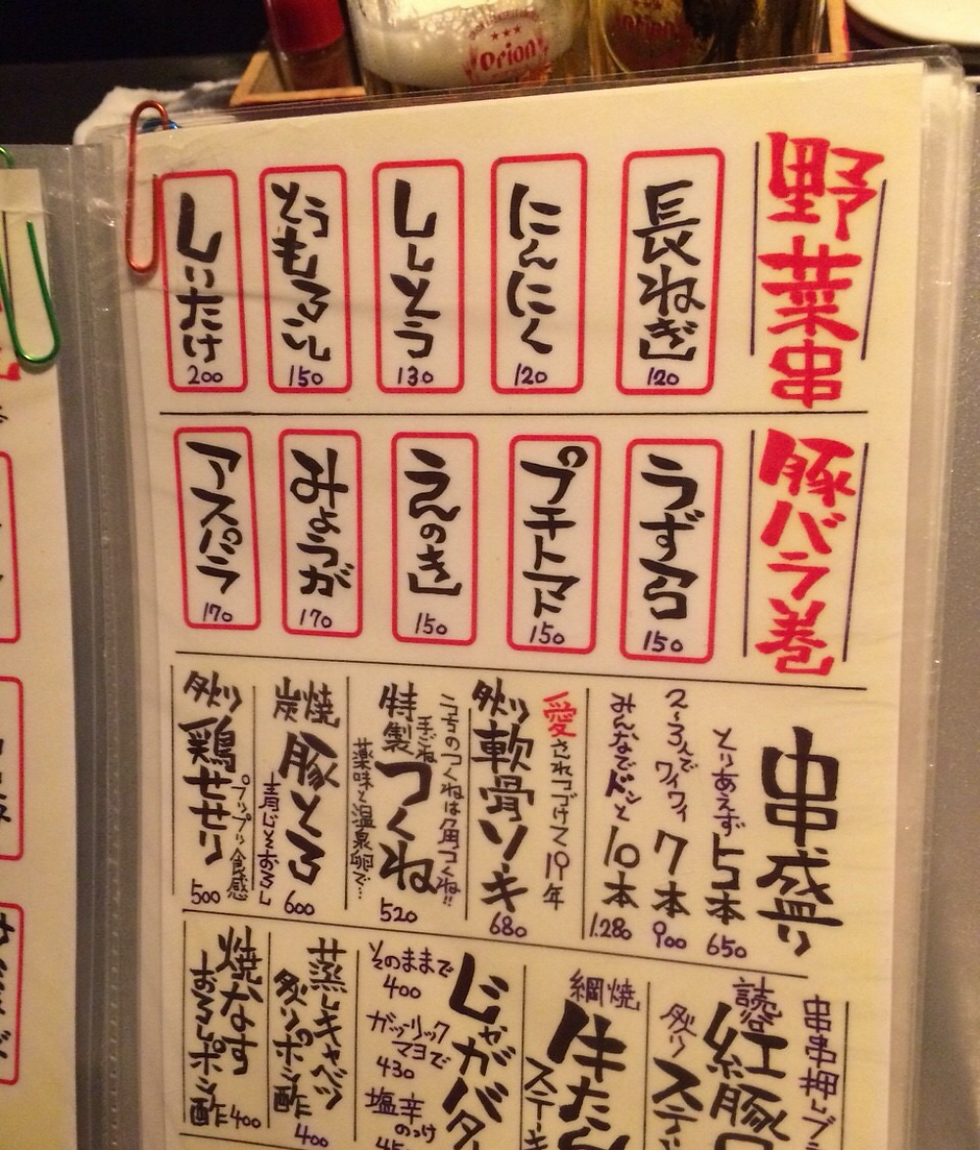 Orion
野菜串
長ねぎ
120
にんにく
120
ししとう
130
とうもろこし
150
しいたけ
200
豚バラ巻
うずら
150
プチトマト
150
えのき
150
みょうが
170
アスパラ
170
串盛り
とりあえず5本
650
2〜3人でワイワイ 7本
900
みんなでドンと 10本
1.280
愛されつづけて19年
炙り軟骨ソーキ
680
手ごね
特製つくね
薬味と温泉卵で…
520
炭焼豚とろ
青じそおろし
600
炙り鶏せせり
プリプリ食感
500
串串押し
紅豚
炙りステ
網焼
牛たん
ステーキ
じゃがバター
そのままで
400
ガーリックマヨで
430
塩辛のっけ
蒸しキャベツ
炙りポン酢
400
焼なす
おろしポン酢 400